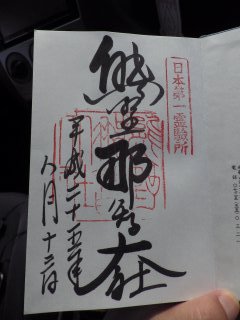 日本第一霊験所
熊野那智大社
平成二十五年
八月十三日